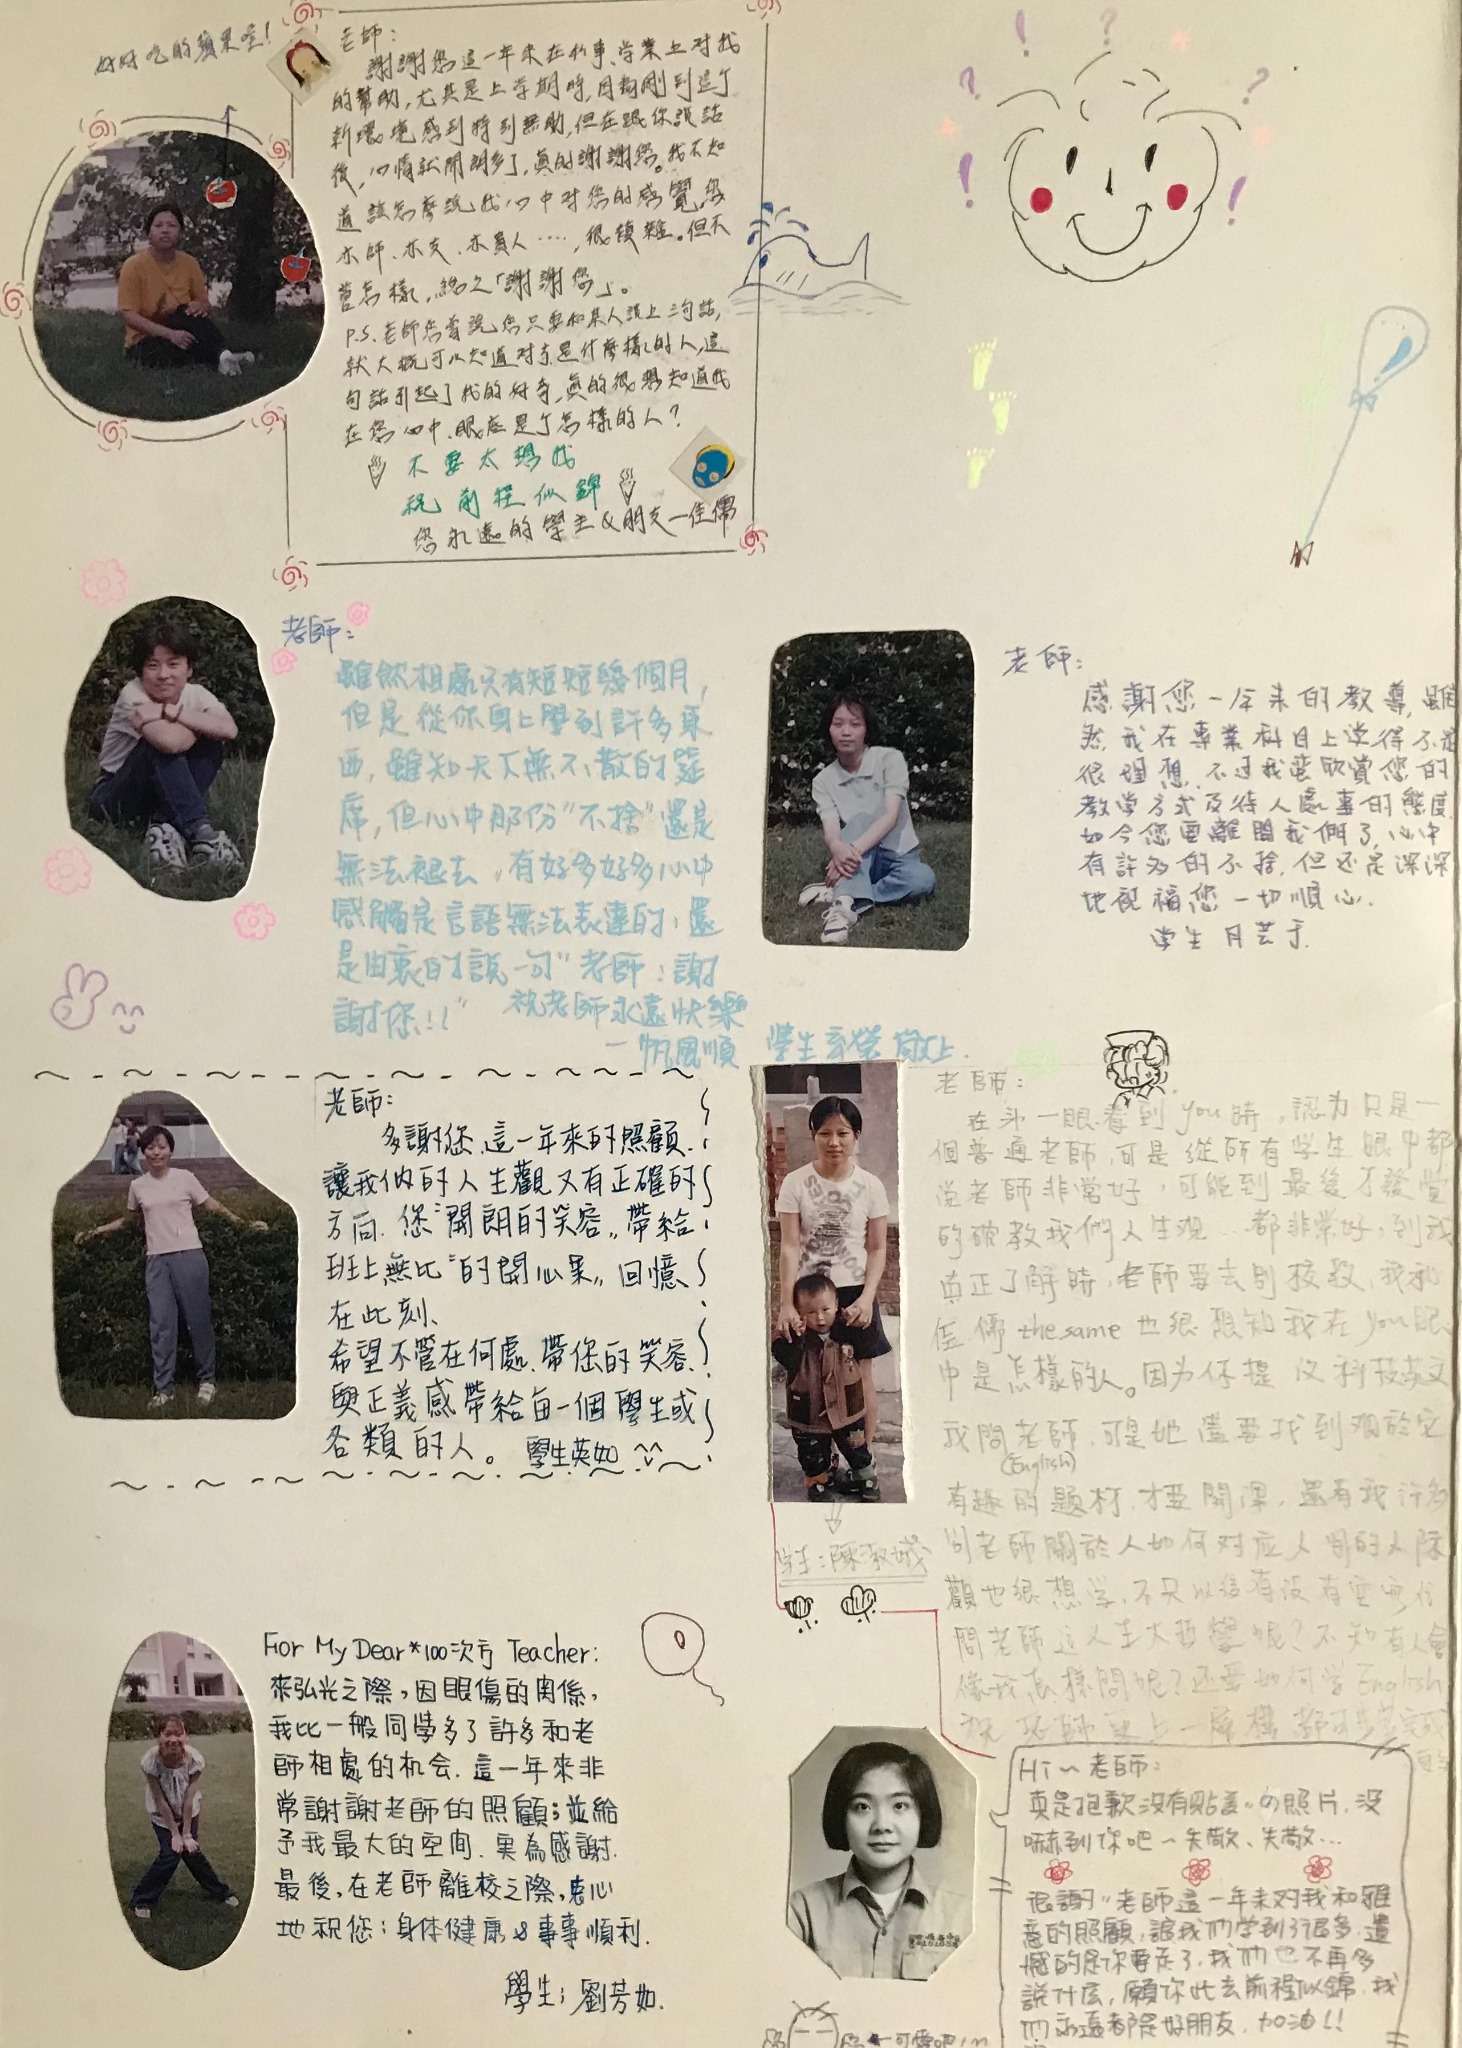 好好吃的蘋果哇!
老師:
謝謝您這一年來在私事、学業上对我
的幫助,尤其是上学期時,因為剛到這个
新環境感到特別無助,但在跟你談話
後,心情就開朗多了,真的謝謝您。我不知
道該怎麼說我心中对您的感覺,您
亦師、亦友、亦員人……,很複雜。但不
管怎樣,総之「謝謝您」。
P.S.老師您曾說您只要和某人說上三句話,
就大概可以知道对方是什麼樣的人,這
句話引起了我的好奇,真的很想知道我
在您心中、眼底是个怎樣的人?
不要太想我
祝前程似錦
您永遠的學生&朋友—佳儒
老師:
雖然相處只有短短幾個月,
但是從你身上學到許多東
西,雖知天下無不散的筵
席,但心中那份"不捨"還是
無法褪去,有好多好多心中
感觸是言語無法表達的,還
是由衷的說一句"老師:謝
謝你!!"
祝老師永遠快樂
一帆風順
學生 敬上.
老師:
感謝您一年來的教導,雖
然,我在專業科目上学得不是
很理想,不过我蠻欣賞您的
教学方式及待人處事的態度,
如今您要離開我們了,心中
有許多的不捨,但还是深深
地祝福您一切順心.
学生 月芸于.
老師:
多謝您這一年來的照顧.
讓我们的人生觀又有正確的
方向.您"開朗的笑容"帶給
班上無比"的開心果"回憶
在此刻、
希望不管在何處、帶您的笑容、
與正義感帶給每一個學生或
各類的人。 學生英如 ^v^
老師:
在第一眼看到you時,認为只是一
個普通老師,可是從所有学生眼中都
說老師非常好,可能到最後才發覺
的確教我們人生观…都非常好,到我
真正了解時,老師要去別校教,我和
佳儒the same也很想知我在you眼
中是怎樣的人。因为你提及科技英文
我問老師(English),可是她儘要找到关於它
有趣的題材,才要開課,還有我許多
別老師關於人如何对应人間的人際
觀也很想学,不只以後有沒有
問老師這人生大哲學呢?不知有人會
像我怎樣問呢?还要如何学English
祝老師更上一層樓
學生:陳淑
For My Dear*100次方 Teacher:
來弘光之際,因眼傷的関係,
我比一般同学多了許多和老
師相處的机会.這一年來非
常謝謝老師的照顧;並給
予我最大的空间.異為感謝.
最後,在老師離校之際,衷心
地祝您:身体健康&事事順利.
學生;劉芳如.
Hi~老師:
真是抱歉沒有貼美的照片,沒
嚇到你吧~失敬、失敬…
很謝"老師這一年來对我和雅
惠的照顧,讓我们学到了很多,遺
憾的是你要走了,我们也不再多
說什庅,願你此去前程似錦,我
们永遠都是好朋友.加油!!
可愛吧!